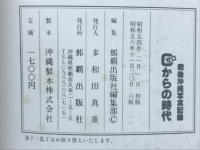 戦後沖縄写真記録
からの時代
昭和五四年
昭和五六年
編集 那覇出版社編集部©
発行人 多和田真重
発行所 那覇出版社
沖縄県那覇市
製本 沖縄製本株式会社
定価 一七〇〇円
落丁・乱丁はお取り替えいたします。